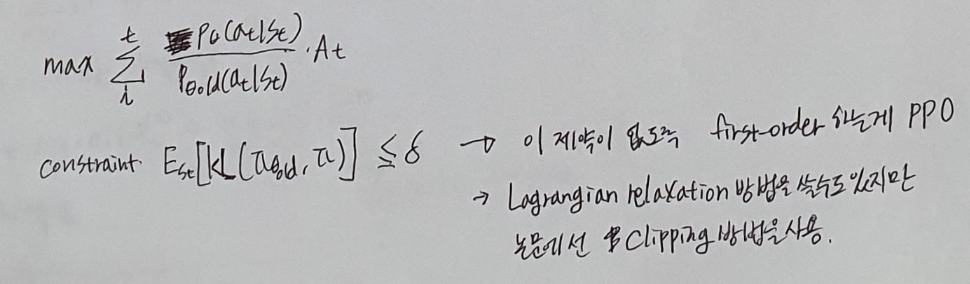 max \sum_{i}^{t} \frac{P_θ(a_t|s_t)}{P_{θold}(a_t|s_t)} \cdot A_t
constraint E_{st}[KL(π_{θold}, π)] ≤ δ → 이 제약이 없도록 first-order 하는게 PPO
→ Lagrangian relaxation 방법을 쓸수도 있지만
논문에선 Clipping 방법을 사용.